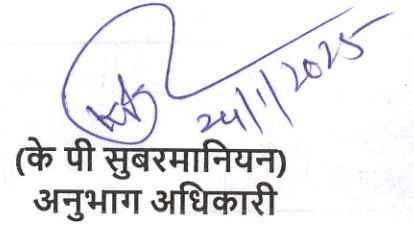 24/1/2025
(के पी सुबरमानियन)
अनुभाग अधिकारी